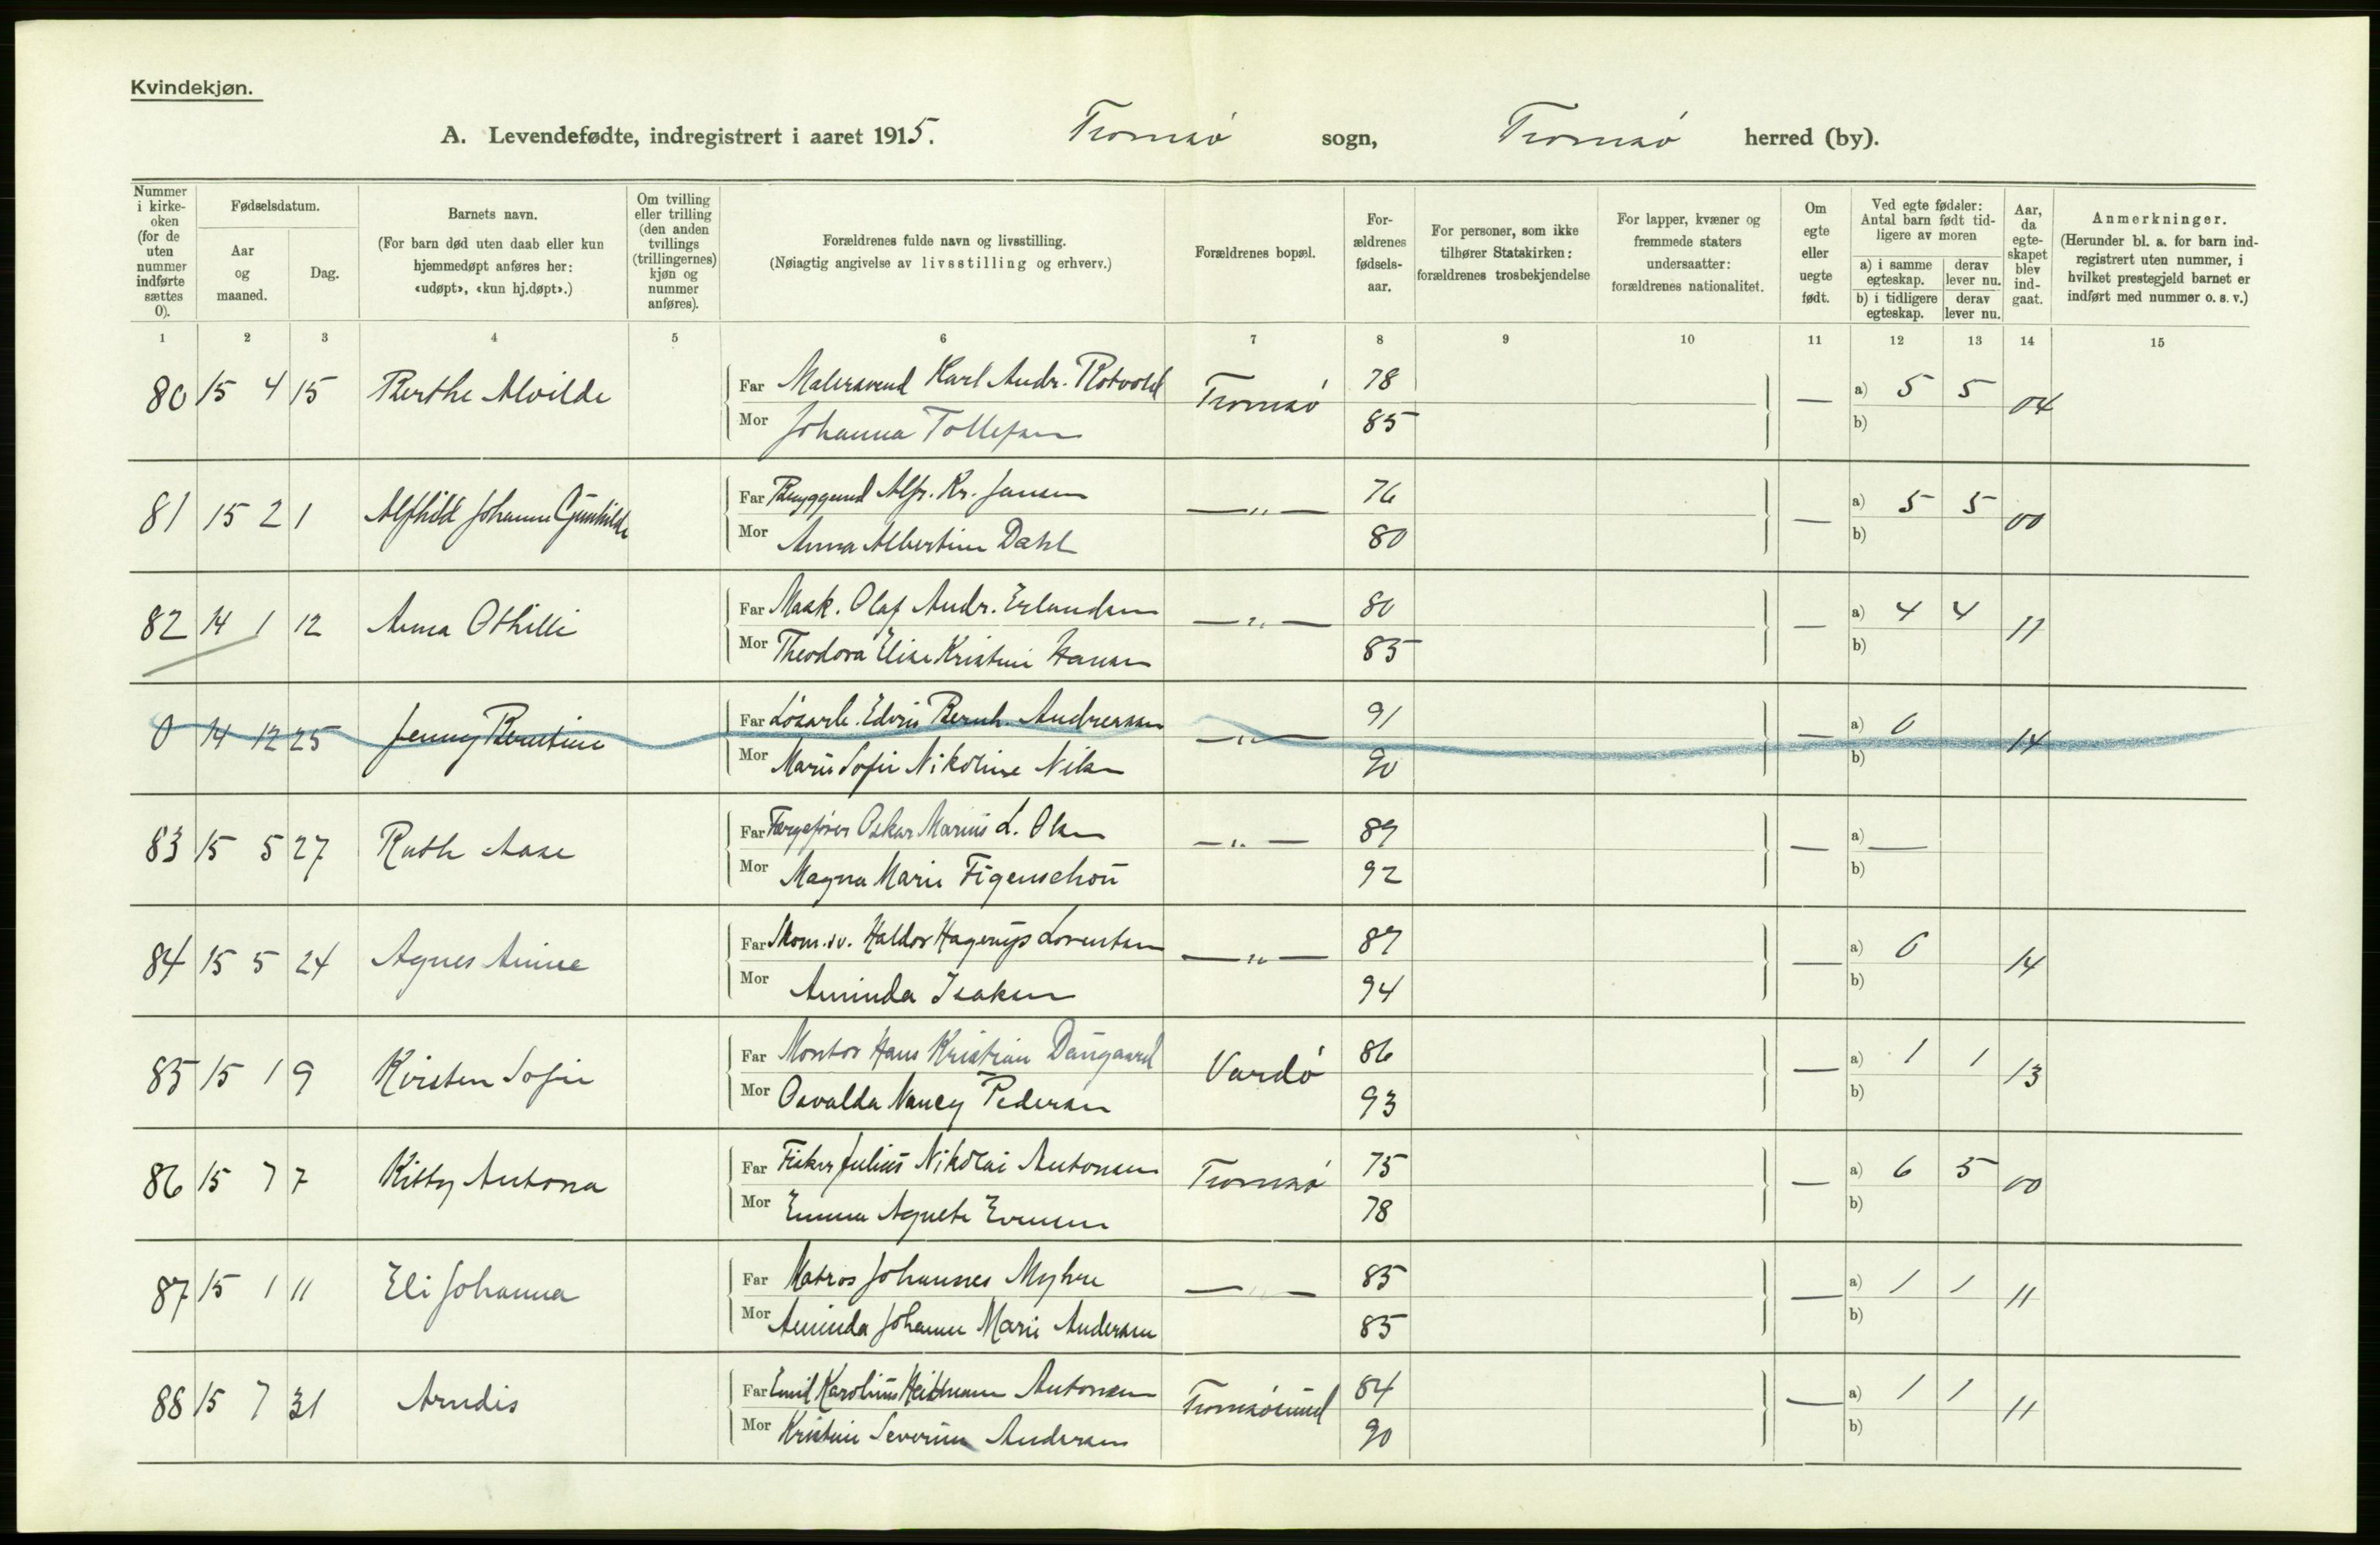 Kvindekjøn.
A. Levendefødte, indregistrert i aaret 1915. Tromsø sogn, Tromsø herred (by).
Nummer i kirke-oken (for de uten nummer indførte sættes 0).
Fødselsdatum.
Aar og maaned.
Dag.
Barnets navn.
(For barn død uten daab eller kun hjemmedøpt anføres her: «udøpt», «kun hj.døpt».)
Om tvilling eller trilling (den anden tvillings (trillingernes) kjøn og nummer anføres).
Forældrenes fulde navn og livsstilling.
(Nøiagtig angivelse av livsstilling og erhverv.)
Forældrenes bopæl.
For-ældrenes fødsels-aar.
For personer, som ikke tilhører Statskirken: forældrenes trosbekjendelse
For lapper, kvæner og fremmede staters undersaatter: forældrenes nationalitet.
Om egte eller uegte født.
Ved egte fødsler: Antal barn født tid-ligere av moren
a) i samme egteskap. derav lever nu.
b) i tidligere egteskap. derav lever nu.
Aar, da egte-skapet blev ind-gaat.
Anmerkninger.
(Herunder bl. a. for barn ind-registrert uten nummer, i hvilket prestegjeld barnet er indført med nummer o. s. v.)
1 2 3 4 5 6 7 8 9 10 11 12 13 14 15
80 15 4 15 Berthe Alvilde Far Malersvend Karl Andr. Rotvold Tromsø 78 — a) 5 5 04
Mor Johanna Tollefsen 85 b)
81 15 2 1 Alfhild Johanne Gunhilde Far Bryggemd Alfr. Kr. Jansen —„— 76 — a) 5 5 00
Mor Anna Albertine Dahl 80 b)
82 14 1 12 Anna Othilie Far Mask. Olaf Andr. Erlandsen —„— 80 — a) 4 4 11
Mor Theodora Elise Kristine Hansen 85 b)
0 14 12 25 Jenny Berntine Far Løsarb. Edvin Bernh. Andreassen —„— 91 — a) 0 14
Mor Marie Sofie Nikoline Nilsen 90 b)
83 15 5 27 Ruth Aase Far Færgefører Oskar Marius L. Olsen —„— 89 — a) —
Mor Magna Marie Figenschou 92 b)
84 15 5 24 Agnes Amine Far Skom.sv. Haldor Hagerup Lorentsen —„— 87 — a) 0 14
Mor Aminda Isaksen 94 b)
85 15 1 9 Kirsten Sofie Far Montør Hans Kristian Daugaard Vardø 86 — a) 1 1 13
Mor Osvalda Nancy Pedersen 93 b)
86 15 7 7 Kitty Antona Far Fisker Julius Nikolai Antonsen Tromsø 75 — a) 6 5 00
Mor Emma Agnete Evensen 78 b)
87 15 1 11 Eli Johanna Far Matros Johannes Myhre —„— 85 — a) 1 1 11
Mor Aminda Johanne Marie Andersen 85 b)
88 15 7 31 Arndis Far Emil Karolius Heitmann Antonsen Tromsøsund 84 — a) 1 1 11
Mor Kristine Severine Andersen 90 b)